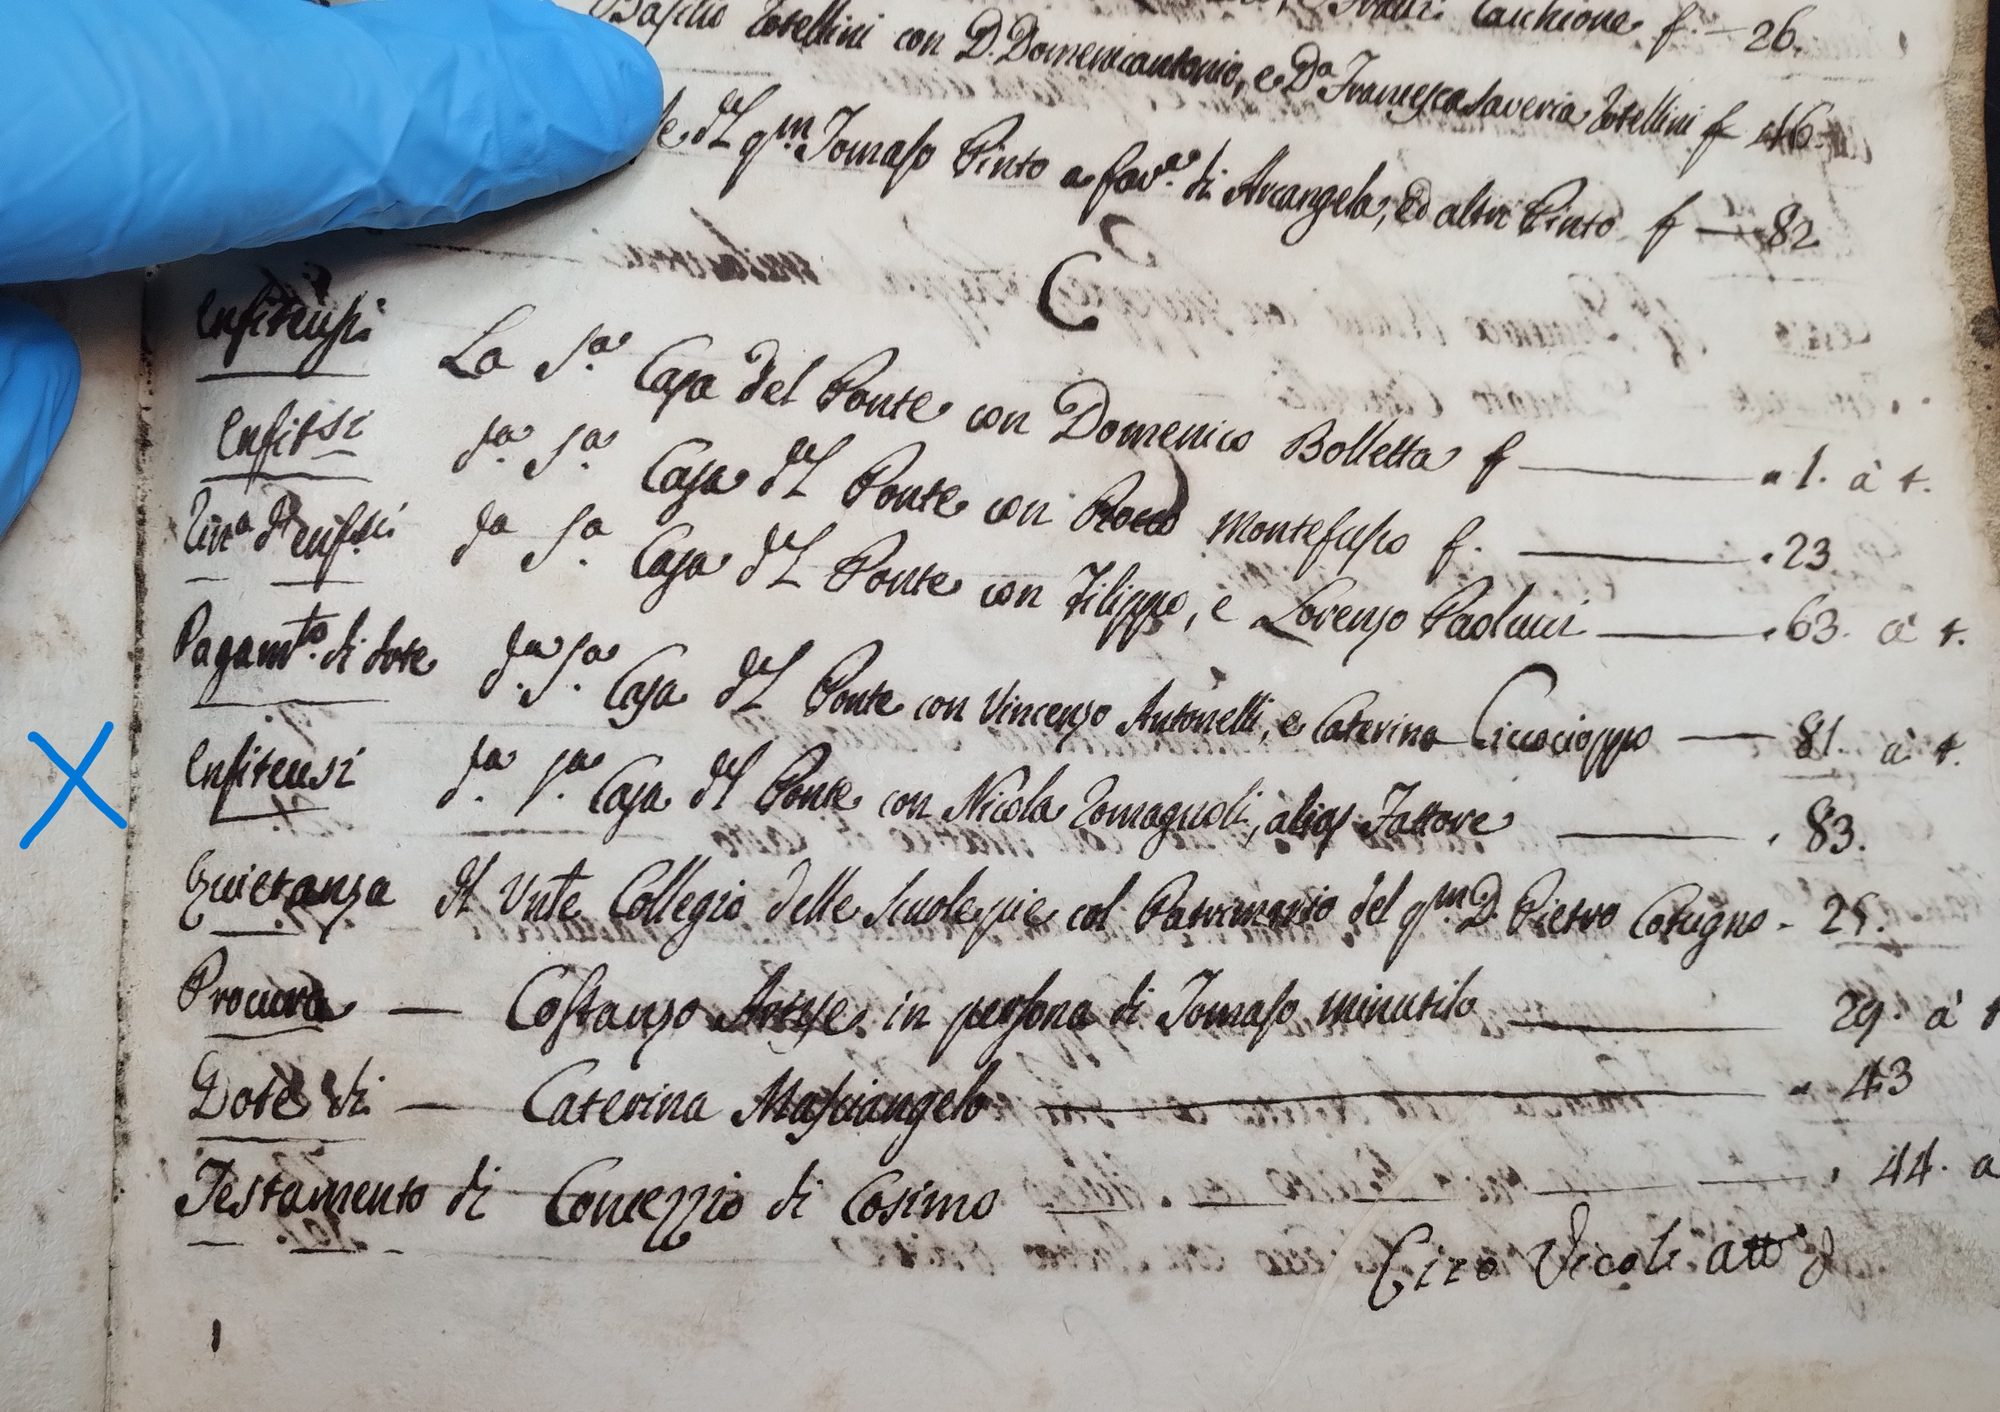 Cacchione f. — 26.
Basilio Totellini con D. Domenicantonio, e D.a Francesca Saveria Totellini f 46.
del q.m Tomaso Pinto a fav.e di Arcangela, ed altri Pinto f — 82
C
Enfiteusi La S.a Casa del Ponte con Domenico Bolletta f — 1. à t.
Enfit.si d.a S.a Casa del Ponte con Rocco Montefusco f. — 23
d'enf.si d.a S.a Casa del Ponte con Filippo, e Lorenzo Paolucci — 63. à t.
Pagam.to di dote d.a S.a Casa del Ponte con Vincenzo Antonelli, e Caterina Ciccocioppo — 81. à t.
Enfiteusi d.a S.a Casa del Ponte con Nicola Romagnoli, alias Fattore — 83.
Quietanza Il Vnte Collegio delle Scuole pie col Patrimonio del q.m D. Pietro Cotugno - 25.
Procura — Costanzo in persona di Tomaso Minutilo — 29. à t
Dote di — Caterina Masciangelo — 43
Testamento di Concezzio di Cosimo — 44. a
Ciro Vicoli att